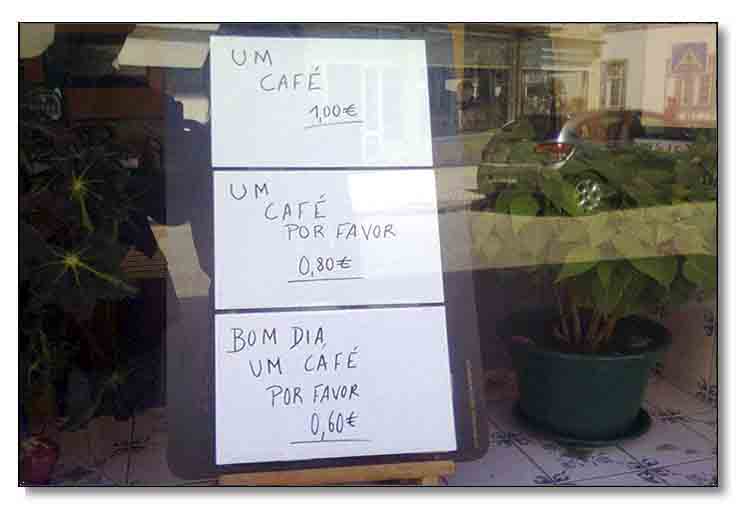 UM
CAFÉ
1,00€
UM
CAFÉ
POR FAVOR
0,80€
BOM DIA,
UM CAFÉ
POR FAVOR
0,60€